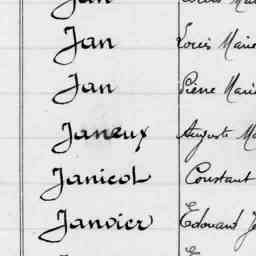 Jan Louis Marie
Jan Pierre Marie
Janeux Auguste
Janicot Constant
Janvier Edouard